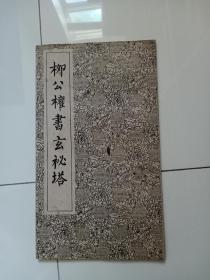 柳公權書玄秘塔